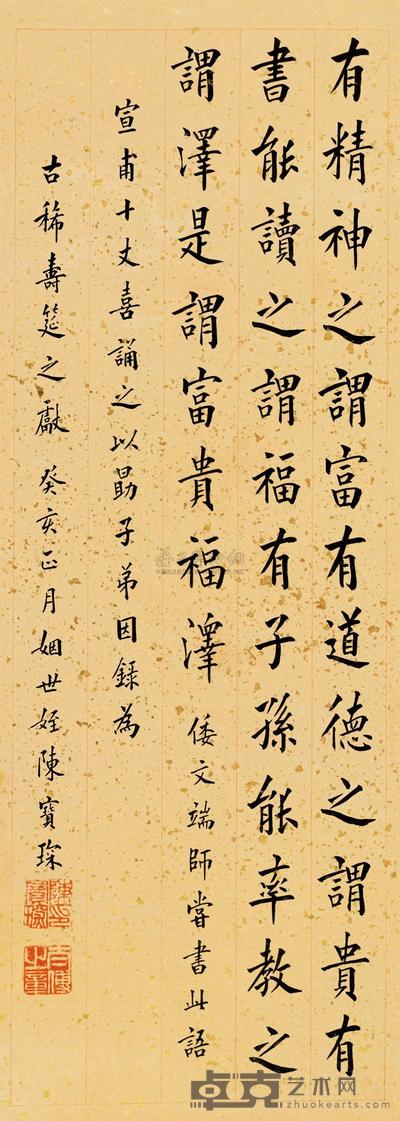 有精神之謂富有道德之謂貴有
書能讀之謂福有子孫能率教之
謂澤是謂富貴福澤 倭文端師嘗書此語
宣甫十丈喜誦之以勗子弟因錄為
古稀壽筵之獻 癸亥正月姻世姪陳寶琛
卓克艺术网
zhuokearts.com